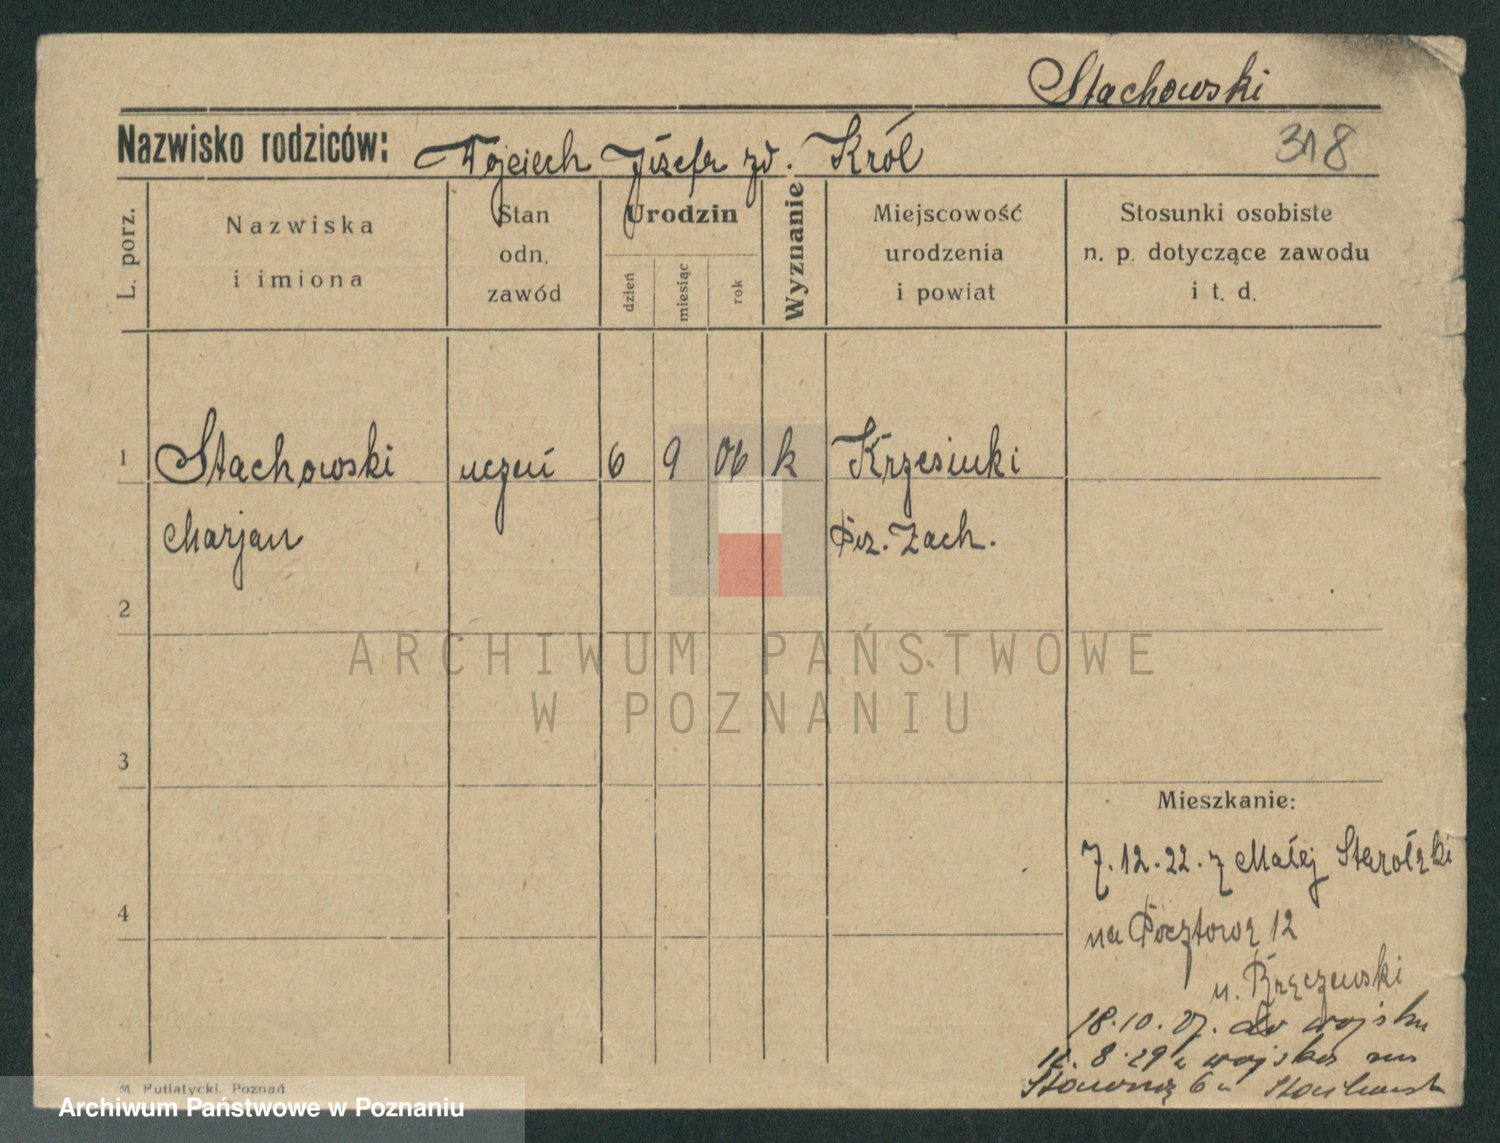 Stachowski
Nazwisko rodziców: Wojciech Józefa zd. Król
318
L. porz.
Nazwiska
i imiona
Stan
odn.
zawód
Urodzin
dzień
miesiąc
rok
Wyznanie
Miejscowość
urodzenia
i powiat
Stosunki osobiste
n. p. dotyczące zawodu
i t. d.
1 Stachowski uczeń 6 9 06 k Krzesinki
Marjan Poz. Zach.
2
ARCHIWUM PAŃSTWOWE
W POZNANIU
3
Mieszkanie:
7.12.22. z Małej Starołęki
4
na Pocztową 12
u. Bręczewski
18.10.27. do wojska
8.29 z wojska na
6 u Stachowski
M. Putiatycki, Poznań
Archiwum Państwowe w Poznaniu